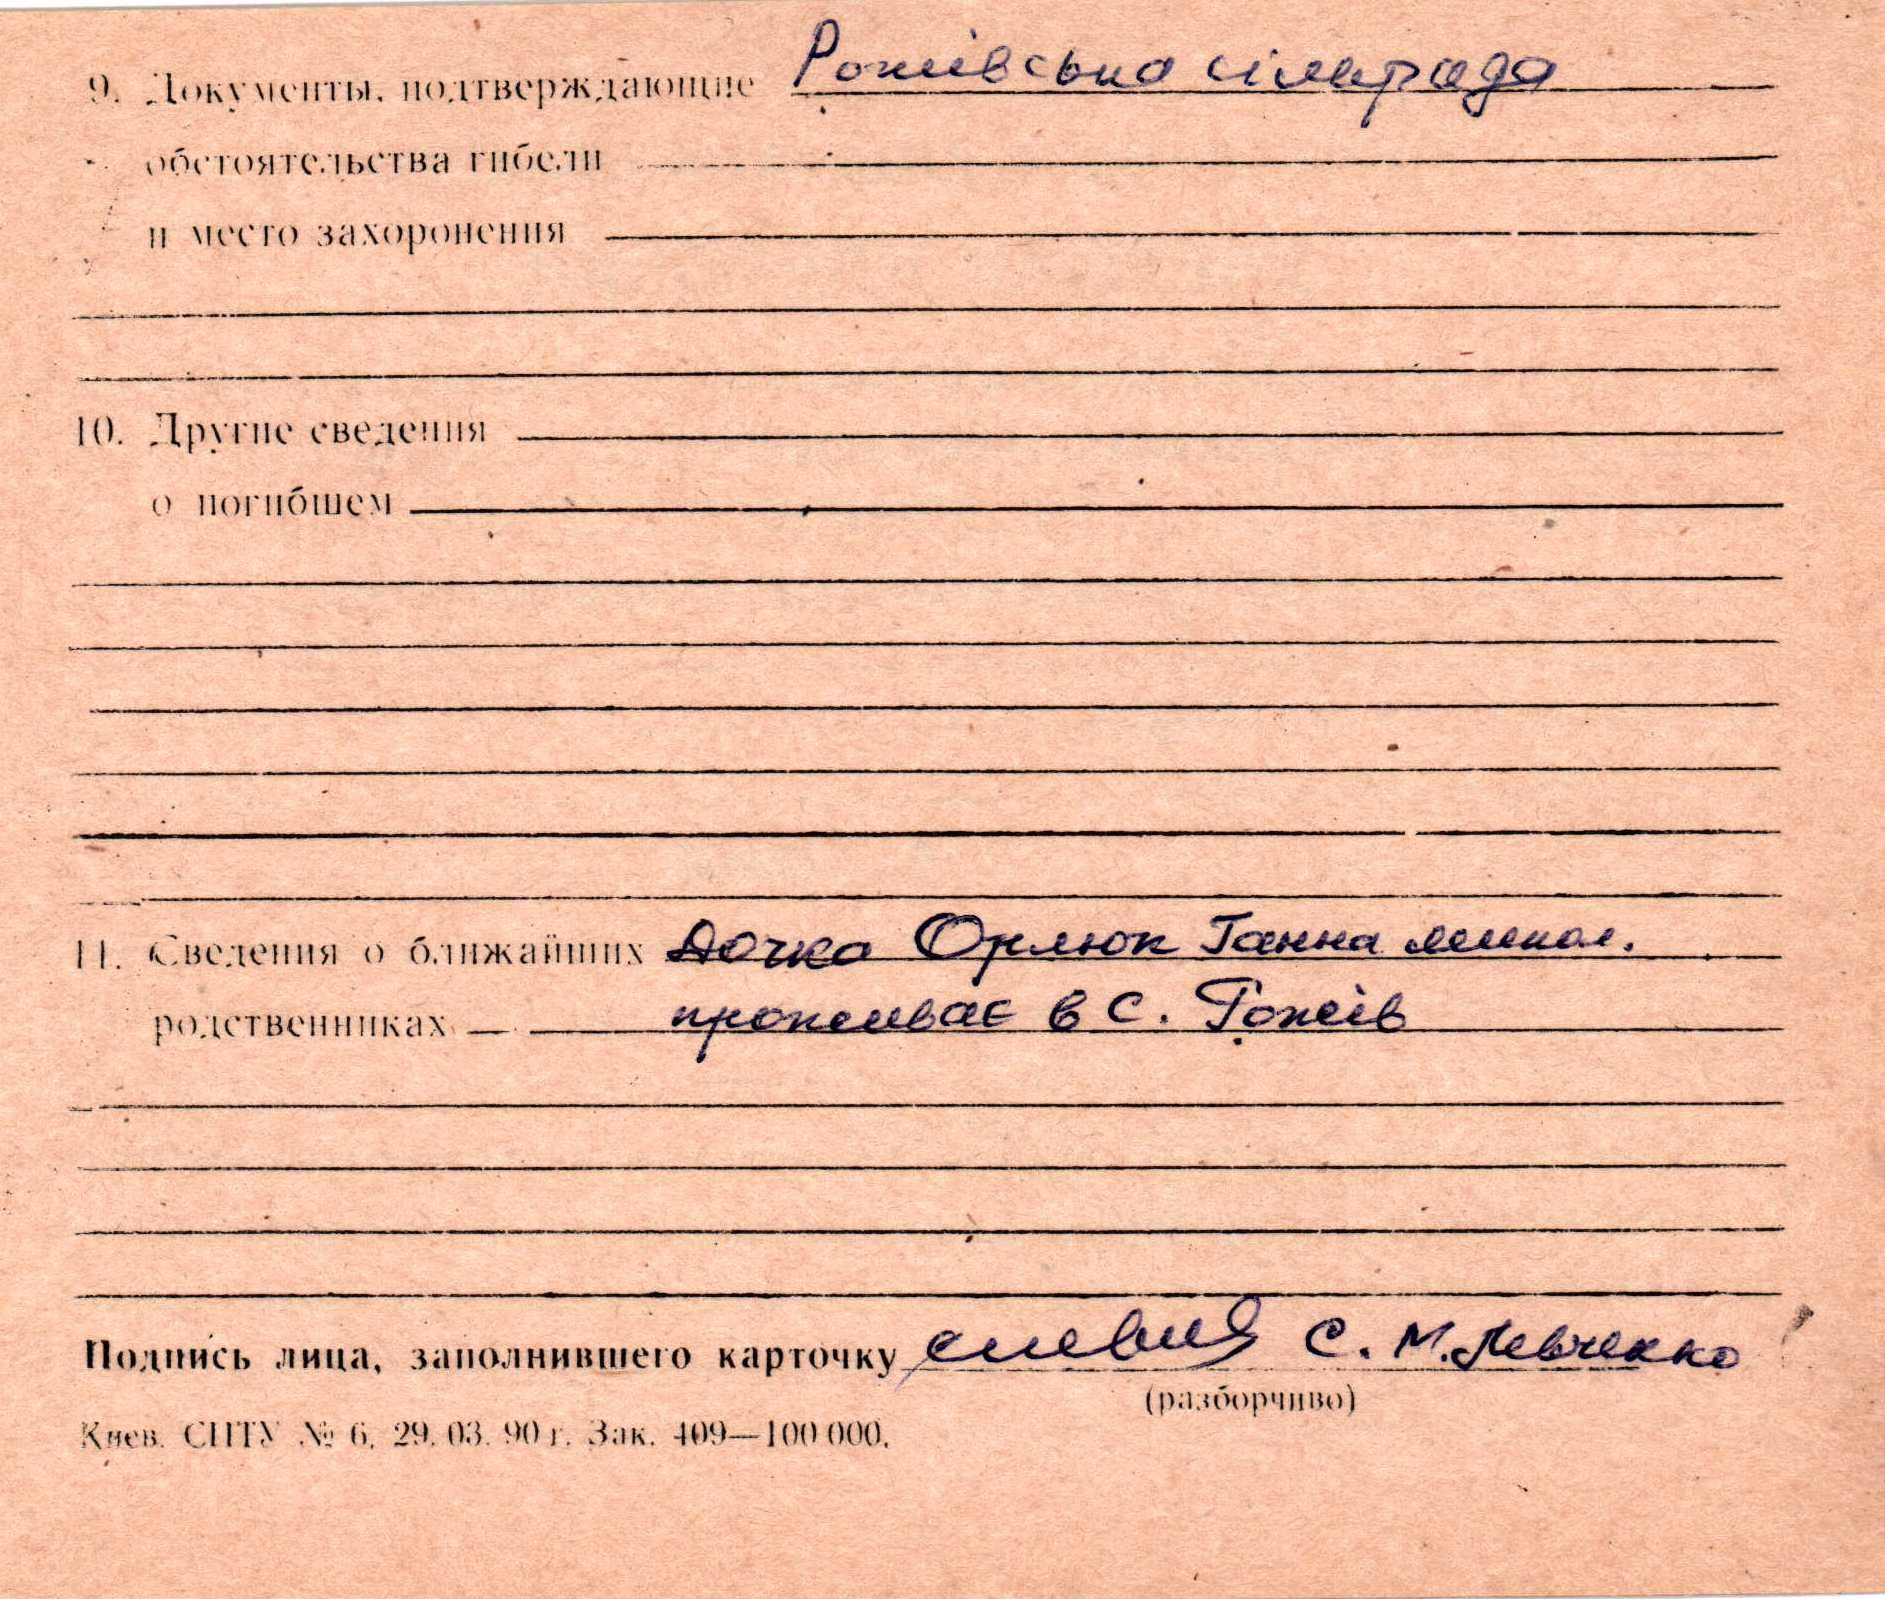 9. Документы, подтверждающие Рожівська сільрада
обстоятельства гибели
и место захоронения
10. Другие сведения
о погибшем
11. Сведения о ближайших дочка Орлюк Ганна микол.
родственниках проживає в с. Рожів
Подпись лица, заполнившего карточку С. М. Левченко
(разборчиво)
Киев. СПТУ № 6. 29. 03. 90 г. Зак. 409—100 000.